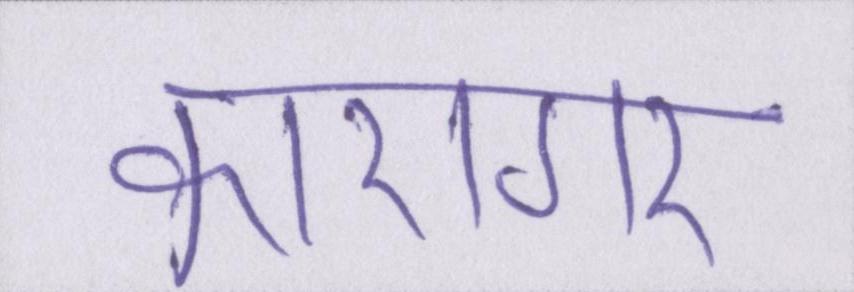 कारागर